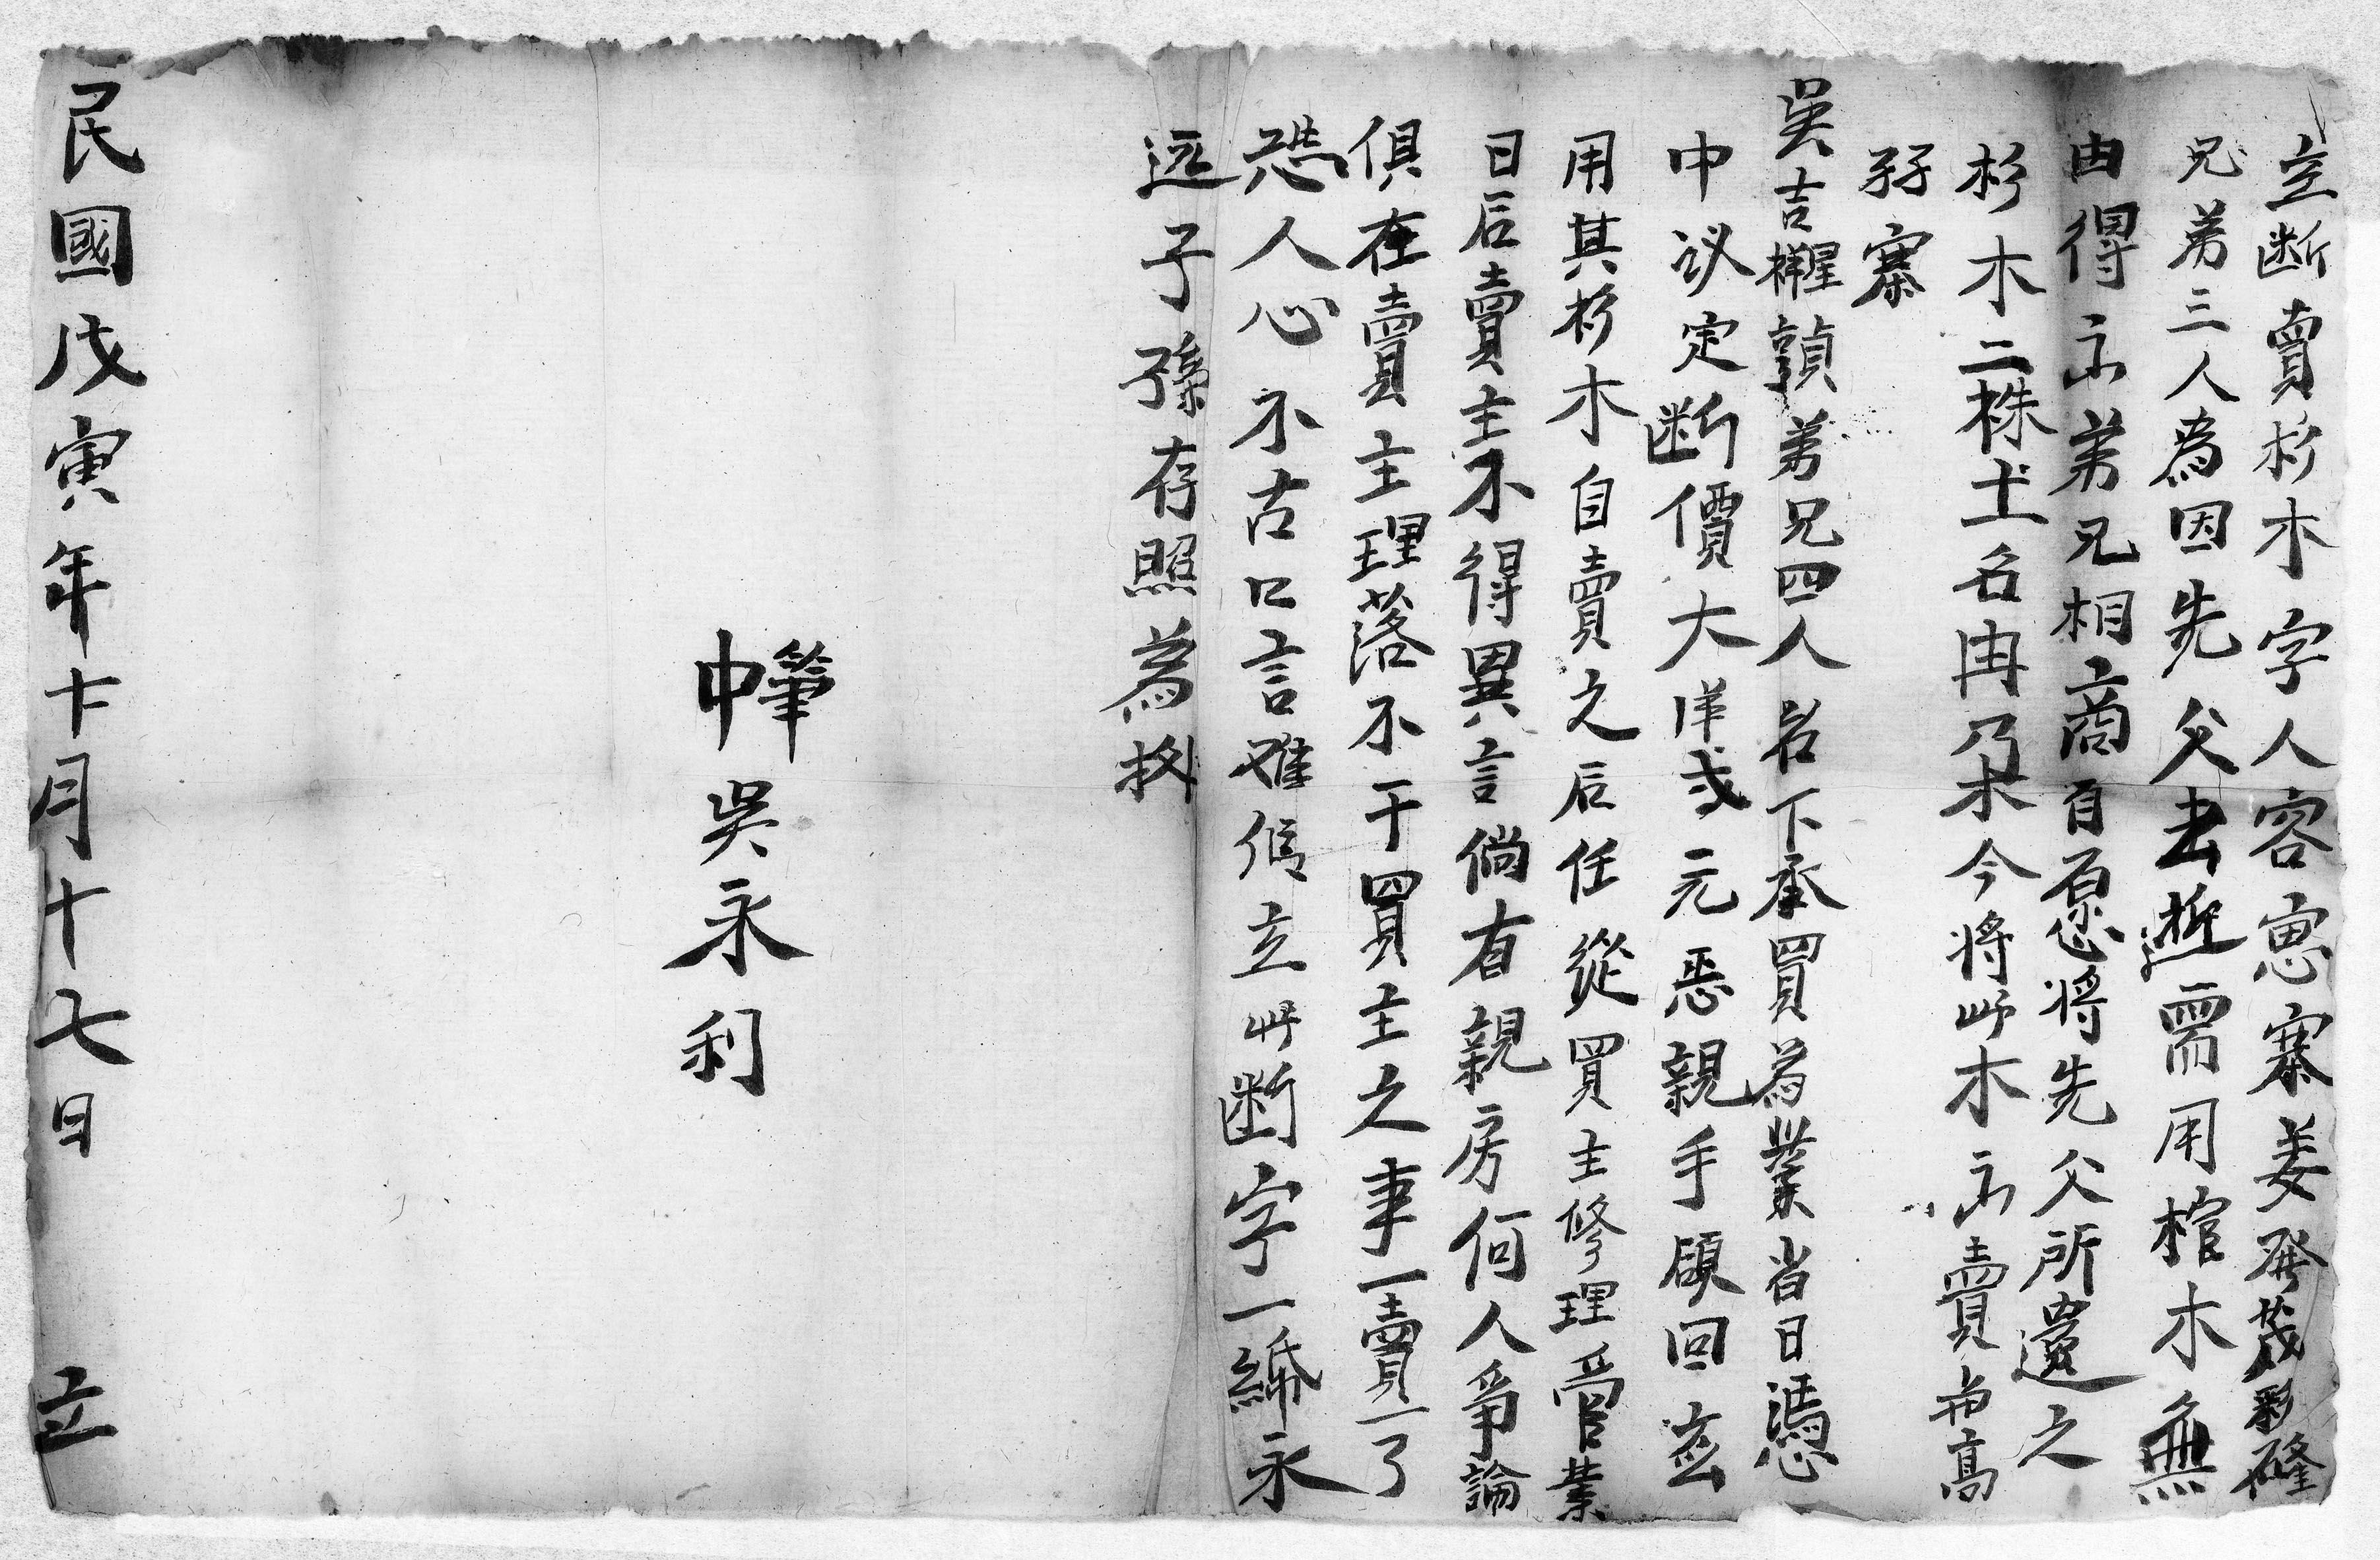 立断賣杉木字人容寃寨姜發茂彩隆
兄弟三人為因先父去逝需用棺木無
由得示弟兄相商自愿将先父所遺之
杉木二株土名冉朶今将此木示賣与髙
孖寨
吳吉櫸顯弟兄四人名下承買為業当日憑
中议定断價大洋弍元悉親手領回应
用其杉木自賣之后任從買主修理管業
日后賣主不得異言倘有親房何人争論
俱在賣主理落不干買主之事一賣一了
恐人心不古口言难信立此断字一紙永
远子孫存照為㨿
中筆吳永利
民國戊寅年十月十七日 立